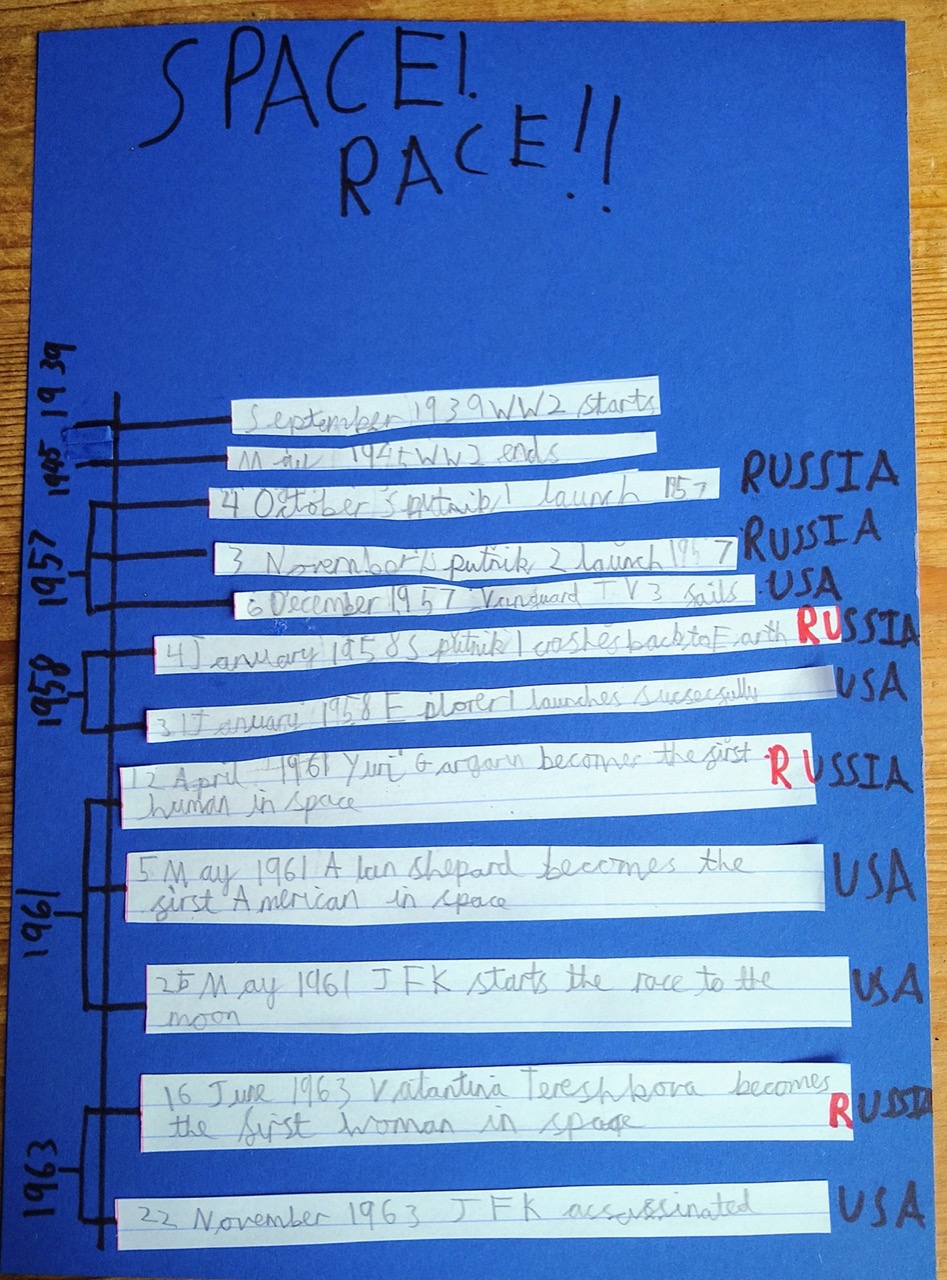 SPACE!
RACE!!
1939
September 1939 WW2 starts
1945
May 1945 WW2 ends
4 October sputnik 1 launch 1957
RUSSIA
1957
3 November sputnik 2 launch 1957
RUSSIA
6 December 1957 Vanguard TV3 sails
USA
4 January 1958 Sputnik 1 crashes back to Earth
RUSSIA
1958
31 January 1958 E plorer 1 launches succesfully
USA
12 April 1961 Yuri Gargarin becomes the first
human in space
RUSSIA
1961
5 May 1961 Alan shepard becomes the
first American in space
USA
25 May 1961 JFK starts the race to the
moon
USA
16 June 1963 Valantina Tereshkova becomes
the first woman in space
RUSSIA
1963
22 November 1963 JFK assassinated
USA